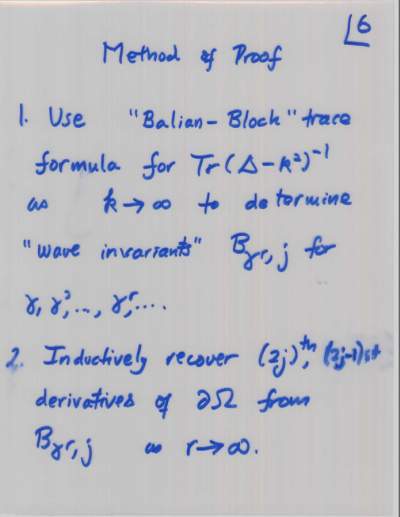 16
Method of Proof
1. Use "Balian-Bloch" trace
formula for Tr(Δ-k²)⁻¹
as k→∞ to determine
"wave invariants" B_γr,j for
γ, γ²,..., γʳ,....
2. Inductively recover (2j)th, (2j-1)st
derivatives of ∂Ω from
B_γr,j as r→∞.